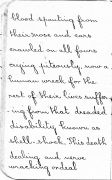 blood spurting from
their nose and ears
crawled on all fours
crying piteously, now a
human wreck for the
rest of their lives suffer-
ing from that dreaded
disability known as
shell-shock. This death
dealing and nerve
wracking ordeal